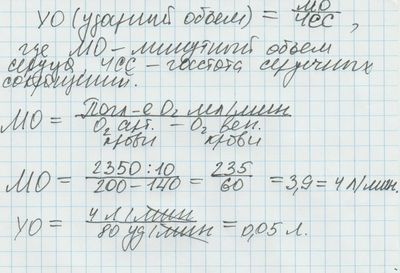 УО (ударный объем) = МО/ЧСС,
где МО – минутный объем
сердца ЧСС – частота сердечных
сокращений.
МО = Погл-е О₂ мл/мин / О₂ арт. крови – О₂ вен. крови
МО = 2350 : 10 / 200 – 140 = 235/60 = 3,9 = 4 л/мин.
УО = 4 л/мин / 80 уд/мин = 0,05 л.